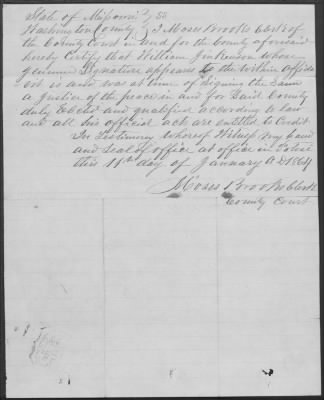 State of Missouri } SS
Washington County } I Moses Brooks Clerk of
the County Court in and for the County aforesaid
hereby Certify that William Jinkerson whose
genuine Signature appears to the within affida
vit is and was at time of signing the Same
a Justice of the peace in and for Said County
duly Elected and qualified according to law
and all his official acts are entitled to Credit
In Testimony whereof Witness my hand
and Seal of office at office in Potosi
this 11th day of January AD 1864
Moses Brooks Clerk
County Court